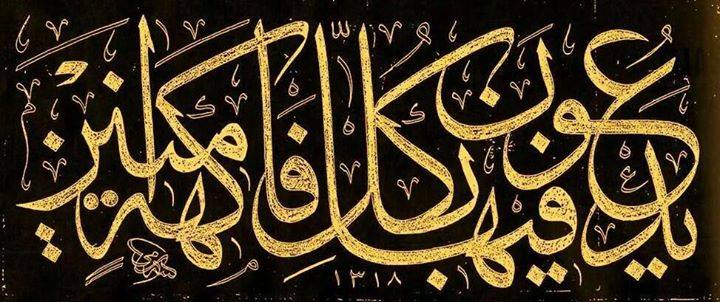 يدعون فيها بكل فاكهة امنين
١٣١٨